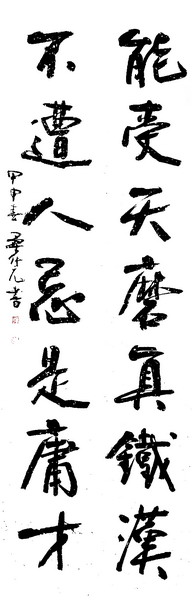 能受天磨真鐵漢
不遭人忌是庸才
甲申春